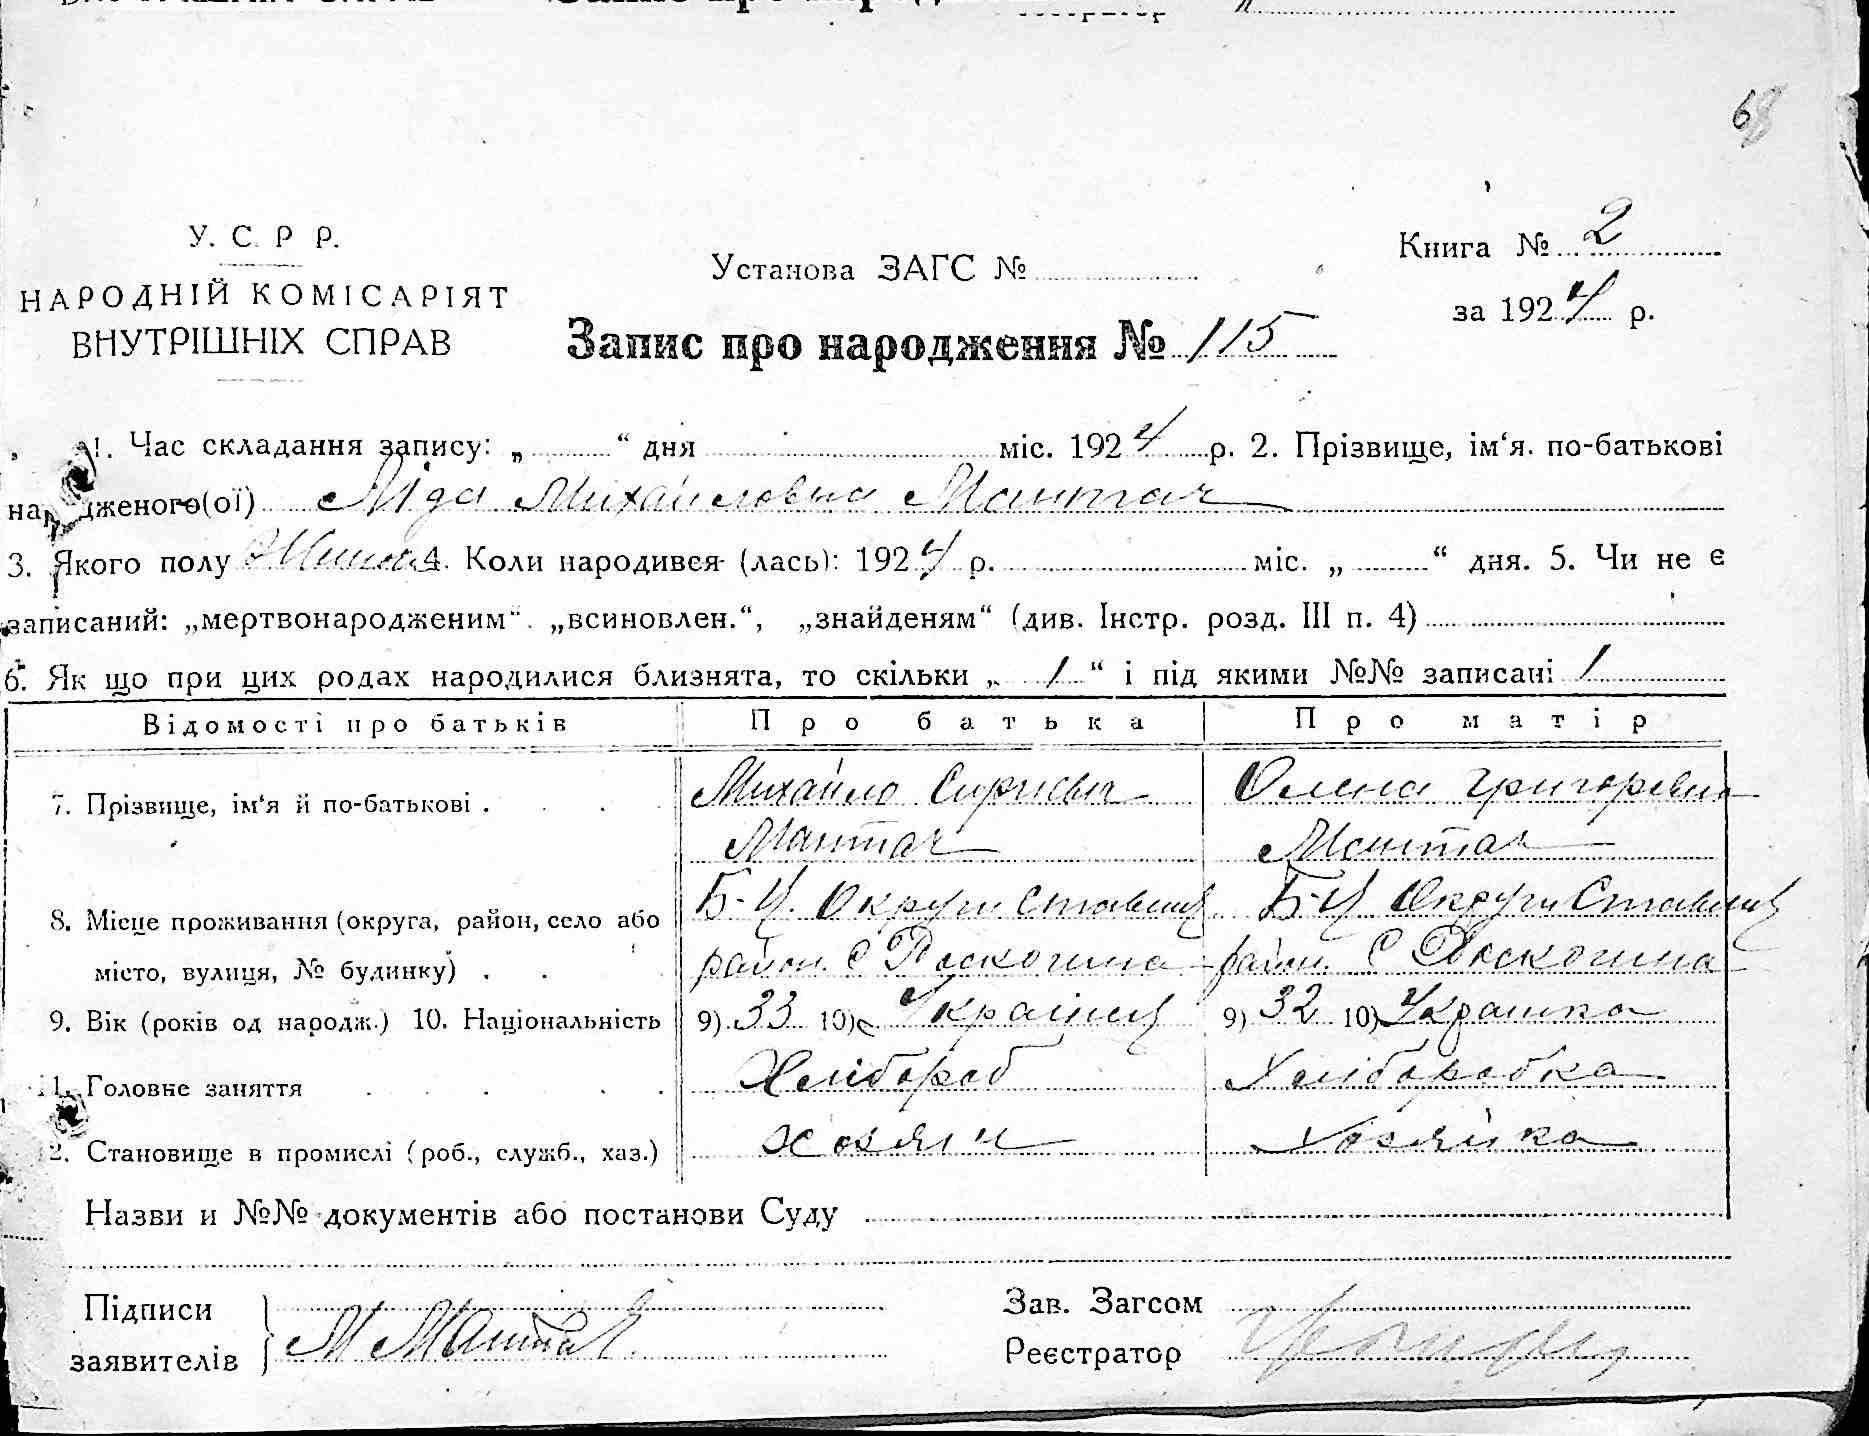 68
У. С. Р. Р.
НАРОДНІЙ КОМІСАРІЯТ
ВНУТРІШНІХ СПРАВ
Установа ЗАГС №
Книга № 2
за 1924 р.
Запис про народження № 115
1. Час складання запису: „ “ дня міс. 1924 р. 2. Прізвище, ім‘я. по-батькові
народженого(ої) Ліда Михайловна Мантач
3. Якого полу 4. Коли народився (лась): 1924 р. міс. „ “ дня. 5. Чи не є
записаний: „мертвонародженим“. „всиновлен.“, „знайденям“ (див. Інстр. розд. III п. 4)
6. Як що при цих родах народилися близнята, то скільки „ / “ і під якими №№ записані /
Відомості про батьків Про батька Про матір
7. Прізвище, ім‘я й по-батькові . Михайло Олена Григоревна
Мантач Мантач
8. Місце проживання (округа, район, село або Б-Ц. Округи Ставищ Б-Ц Округи Ставищ
місто, вулиця, № будинку) . район. С Розкошна район. С Розкошна
9. Вік (років од народж.) 10. Національність 9) 33 10) Українец 9) 32 10) Украинка
11. Головне заняття Хлібороб Хліборобка
12. Становище в промислі (роб., служб., хаз.) хозяїн Хозяйка
Назви и №№ документів або постанови Суду
Підписи
заявителів
М Мантач
Зав. Загсом
Реєстратор